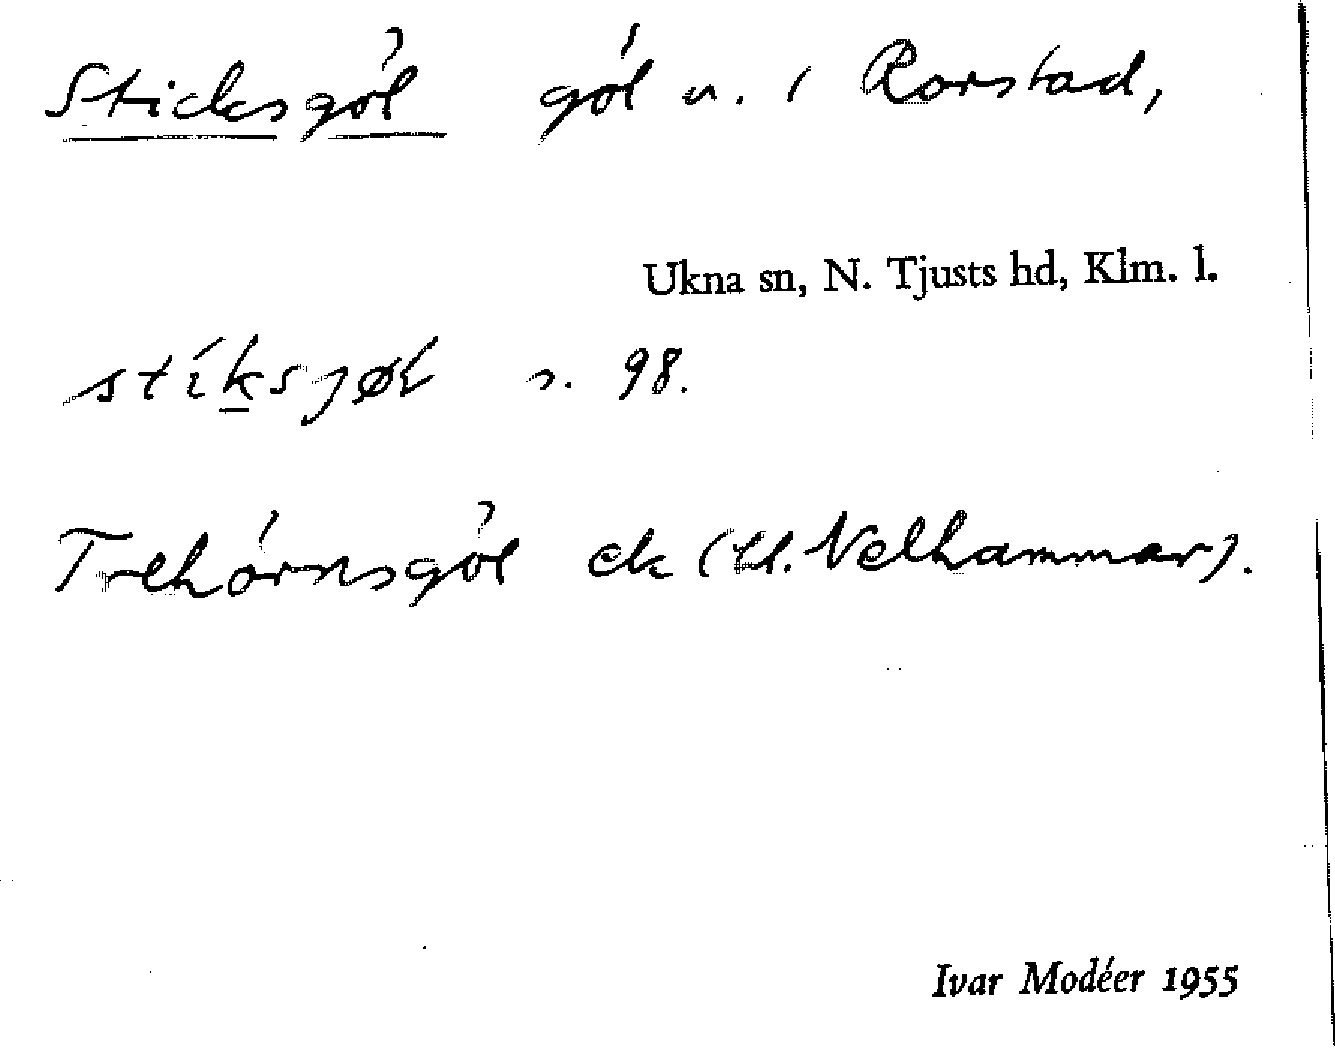 Sticksgöl göl n. i Rorstad,
Ukna sn, N. Tjusts hd, Klm. l.
stíksjøl s. 98.
Trehörnsgöl ek (Ll. Velhammar).
Ivar Modéer 1955